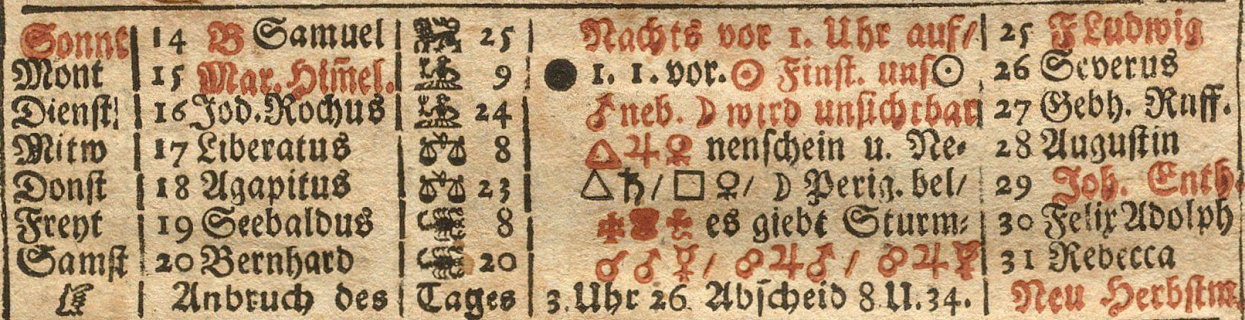 Sonne 14 B Samuel 25 Nachts vor 1. Uhr auf/ 25 F Ludwig
Mont 15 Mar. Him̄el. 9 ● 1. 1. vor. ☉ Finst. uns☉ 26 Severus
Dienst 16 Jod. Rochus 24 ♂ neb. ☽ wird unsichtbar 27 Gebh. Ruff.
Mitw 17 Liberatus ♎ 8 △ ♃ ♀ nenschein u. Ne- 28 Augustin
Donst 18 Agapitus ♎ 23 △ ♄ / □ ♀ / ☽ Perig. bel/ 29 Joh. Enth.
Freyt 19 Seebaldus 8 es giebt Sturm- 30 Felix Adolph
Samst 20 Bernhard 20 ☌ ♂ ☿ / ☍ ♃ ♂ / ☍ ♃ 31 Rebecca
Anbruch des Tages 3. Uhr 26. Abscheid 8 U. 34. Neu Herbstm.